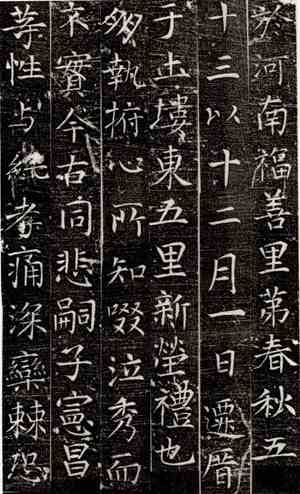 於河南福善里第春秋五
十三以十二月一日遷厝
于土塿東五里新塋禮也
朋執拊心所知啜泣秀而
不實今古同悲嗣子憲昌
等性与純孝痛深欒棘恐